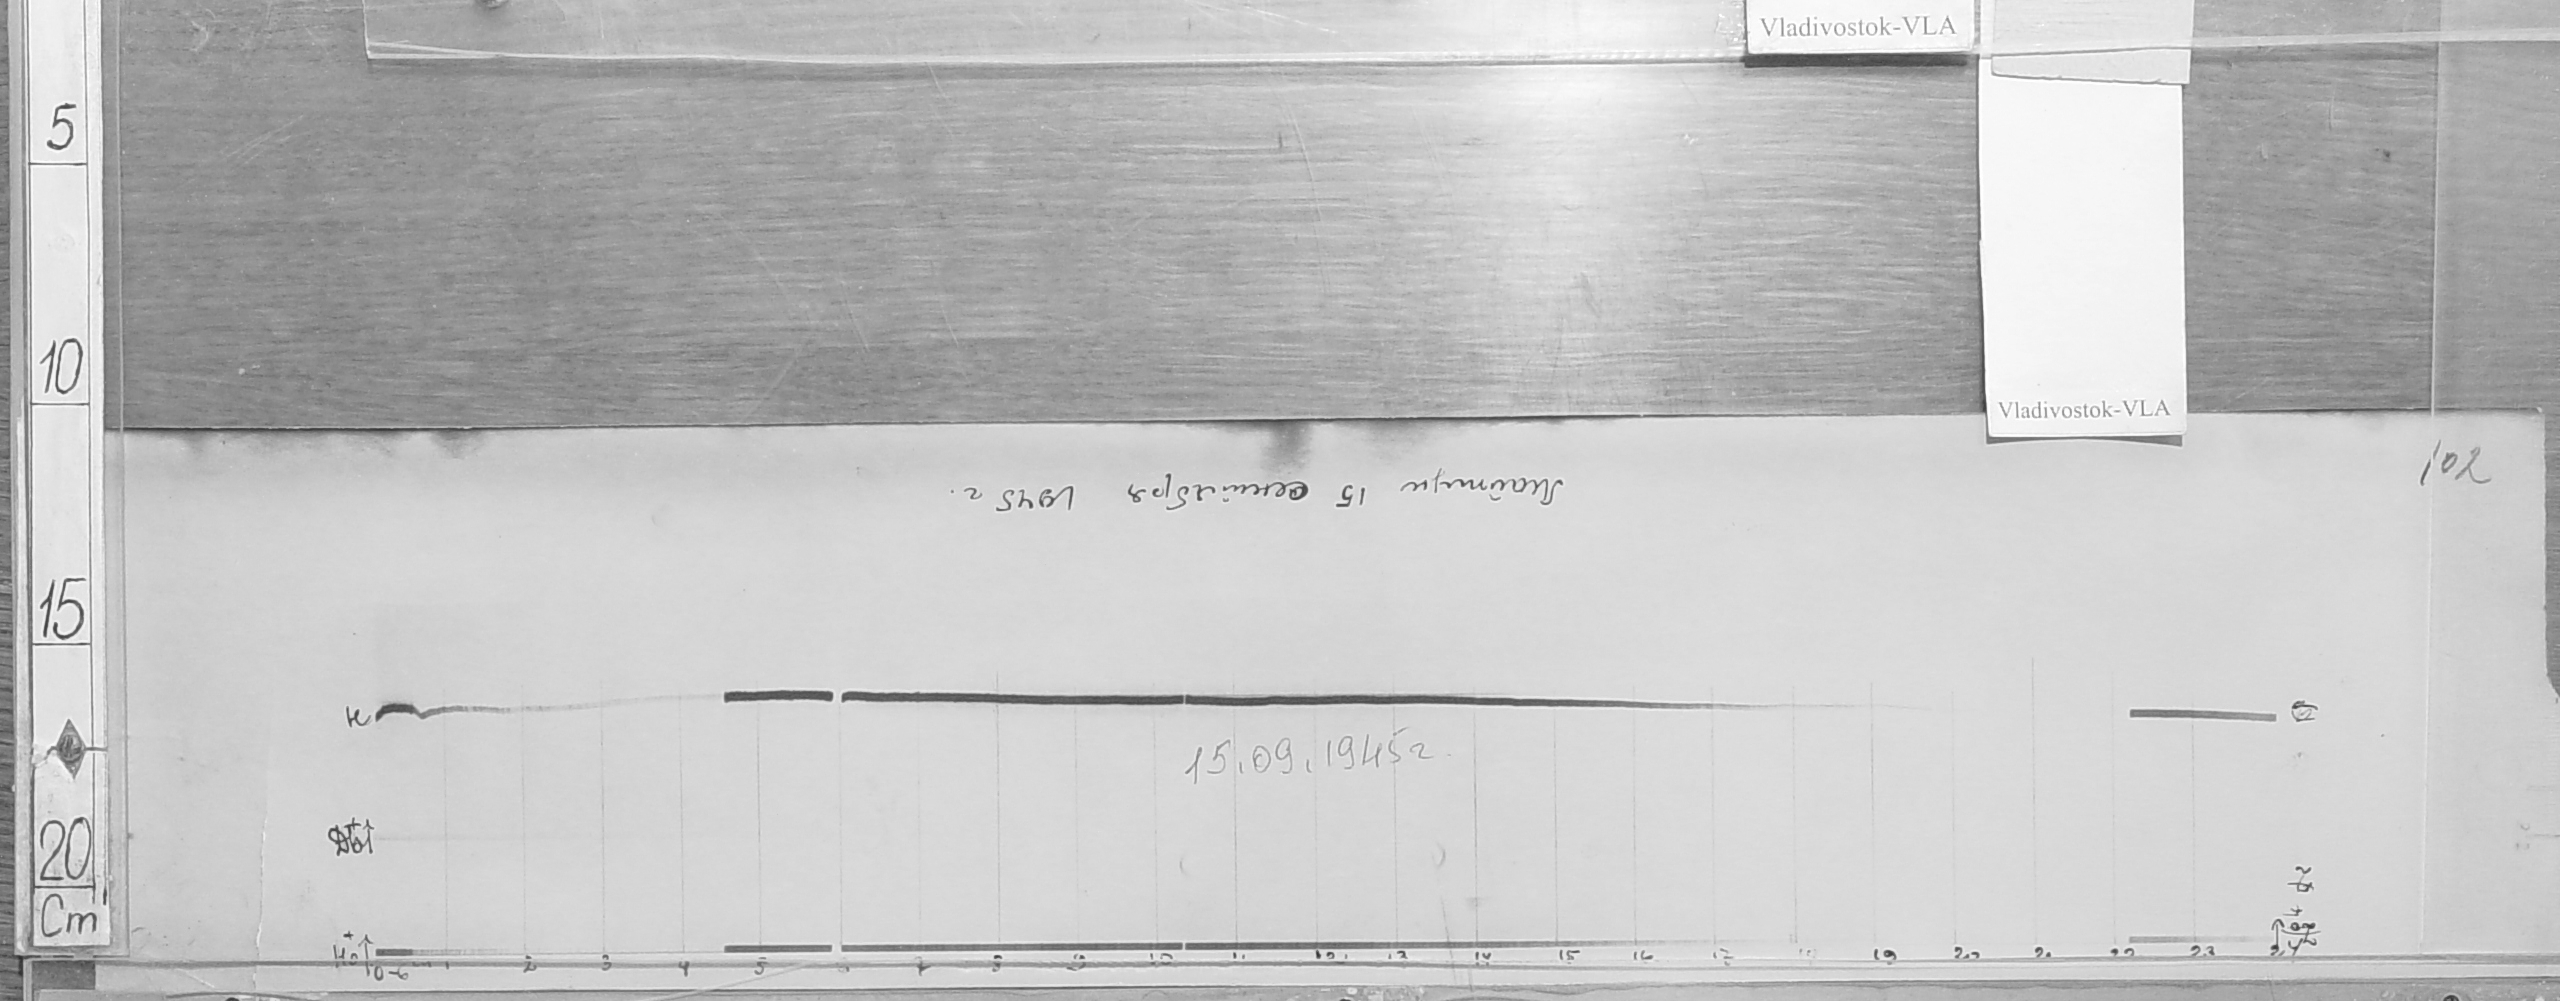 Vladivostok-VLA
5
10
Vladivostok-VLA
201
15 сентября 1945 г.
15
H
Z
15.09.1945г.
20
Cm
H₀
0-6 1 2 3 4 5 6 7 8 9 10 11 12 13 14 15 16 17 18 19 20 21 22 23 24